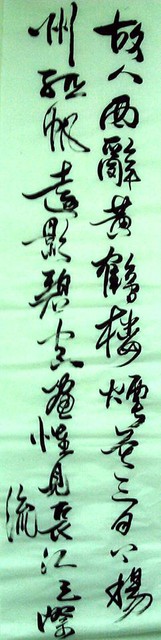 故人西辭黄鶴楼煙花三月下揚
州孤帆遠影碧空盡惟見長江天際
流